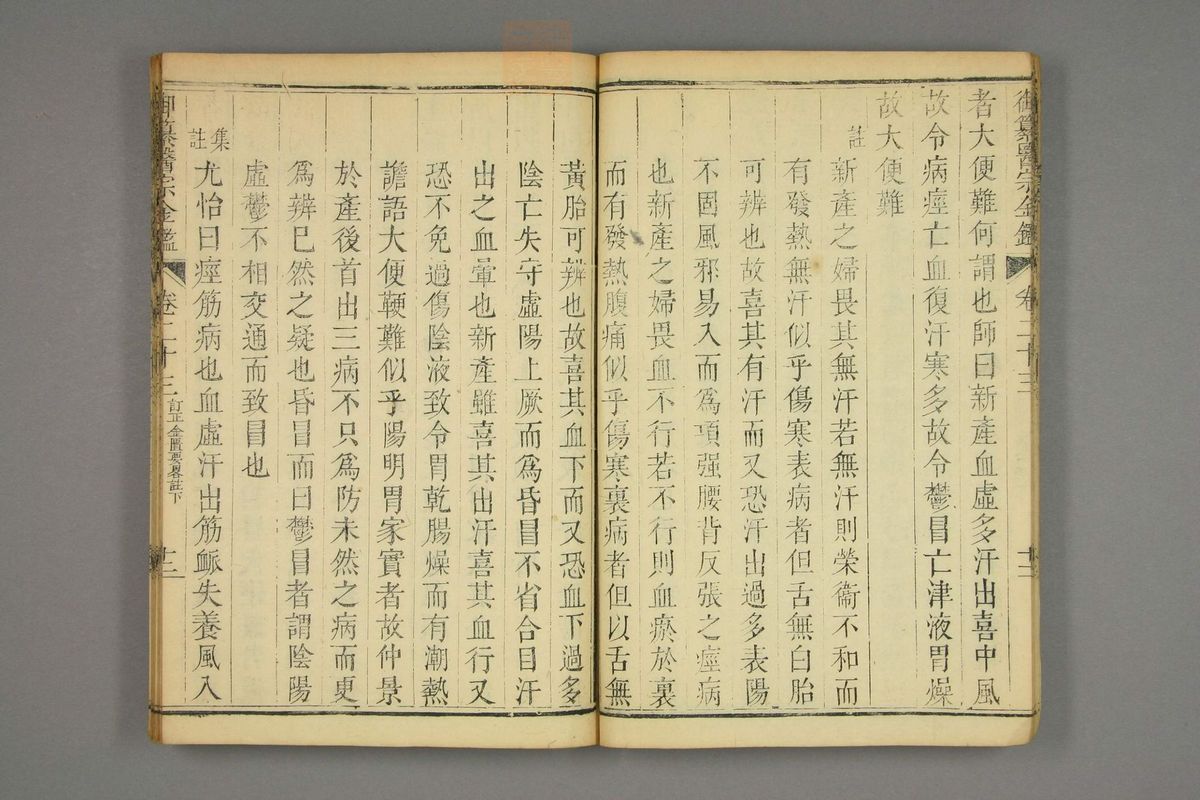 御纂醫宗金鑑 卷二十三 十二
者大便難何謂也師曰新產血虛多汗出喜中風
故令病痙亡血復汗寒多故令鬱冒亡津液胃燥
故大便難
註 新產之婦畏其無汗若無汗則榮衞不和而
有發熱無汗似乎傷寒表病者但舌無白胎
可辨也故喜其有汗而又恐汗出過多表陽
不固風邪易入而爲項强腰背反張之痙病
也新產之婦畏血不行若不行則血瘀於裏
而有發熱腹痛似乎傷寒裏病者但以舌無
黃胎可辨也故喜其血下而又恐血下過多
陰亡失守虛陽上厥而爲昏冒不省合目汗
出之血暈也新產雖喜其出汗喜其血行又
恐不免過傷陰液致令胃乾腸燥而有潮熱
譫語大便鞕難似乎陽明胃家實者故仲景
於產後首出三病不只爲防未然之病而更
爲辨已然之疑也昏冒而曰鬱冒者謂陰陽
虛鬱不相交通而致冒也
集註 尤怡曰痙筋病也血虛汗出筋脈失養風入
御纂醫宗金鑑 卷二十三 訂正金匱要畧註下 十二